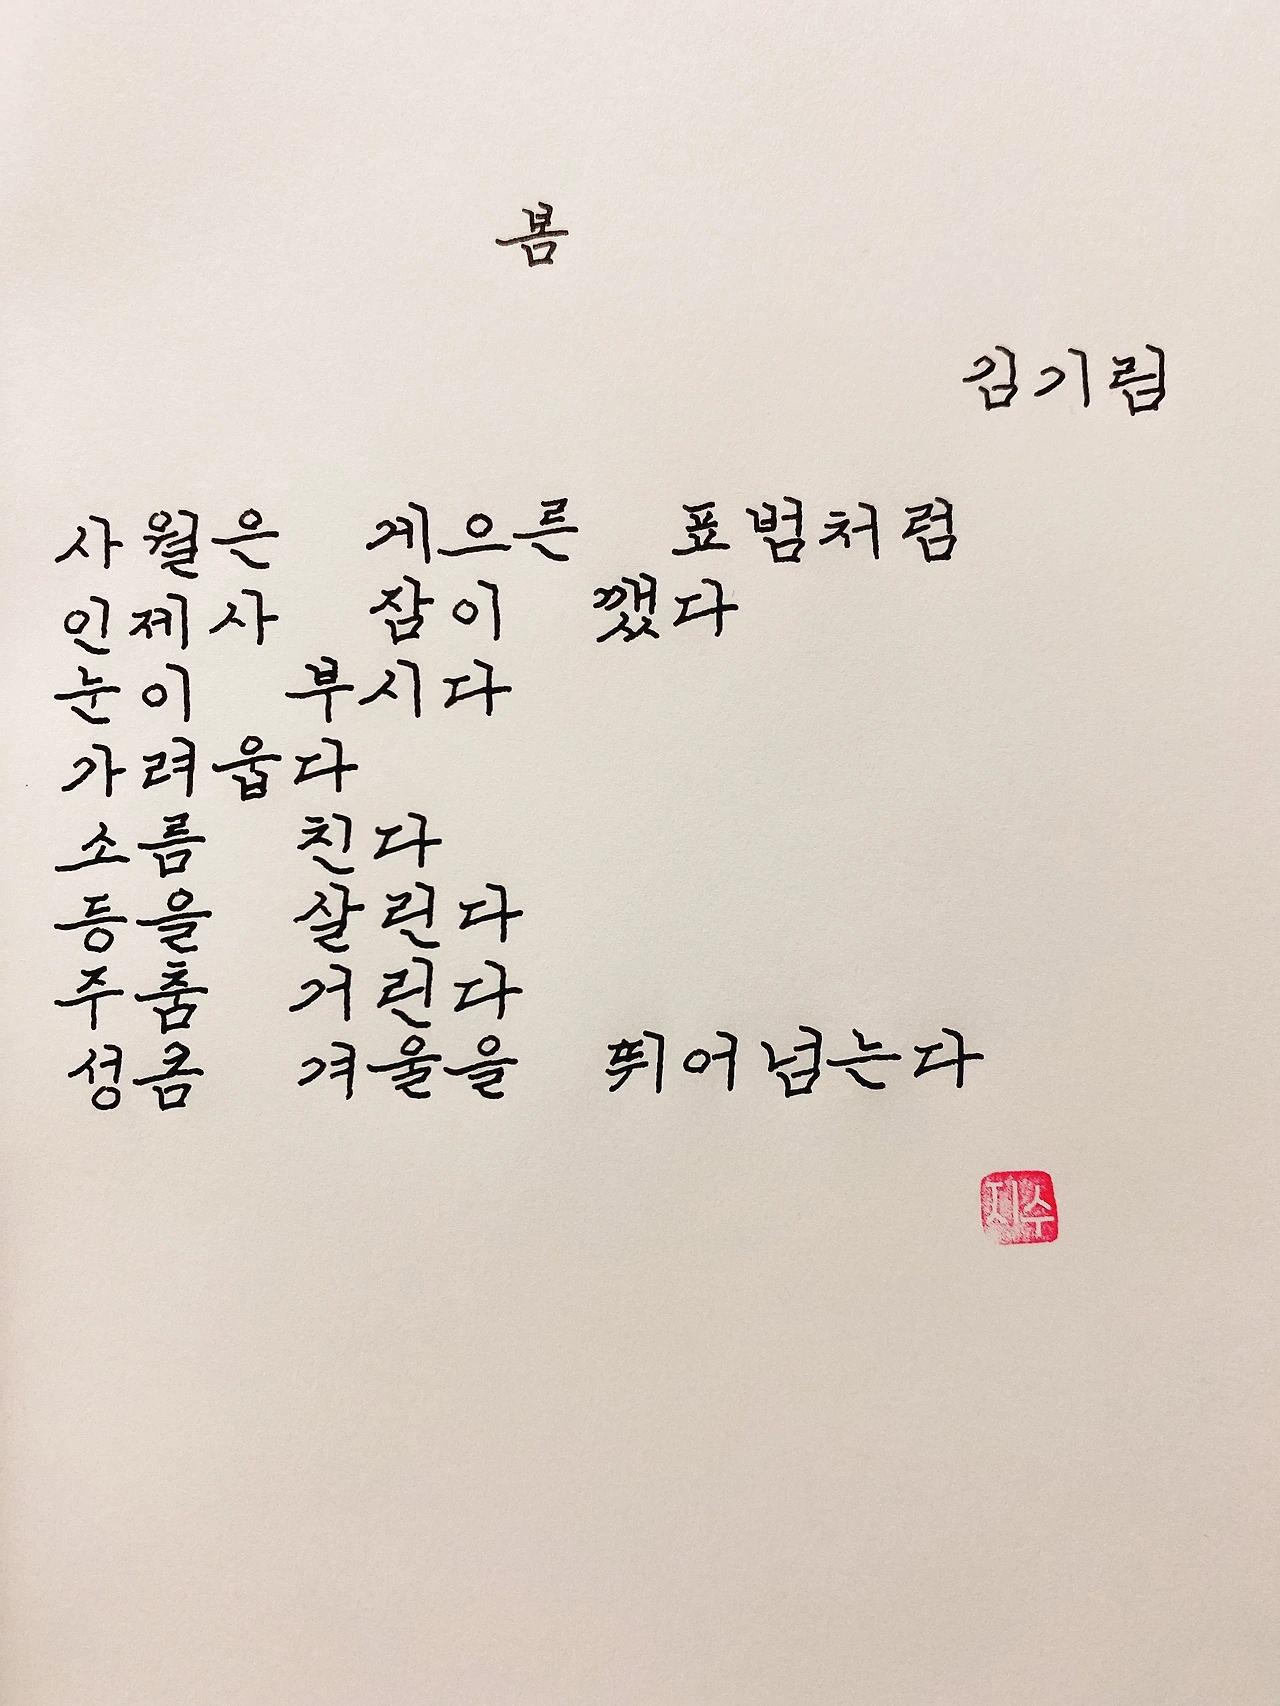 봄
김기림
사월은 게으른 표범처럼
인제사 잠이 깼다
눈이 부시다
가려웁다
소름 친다
등을 살린다
주춤 거린다
성큼 겨울을 뛰어넘는다
지수